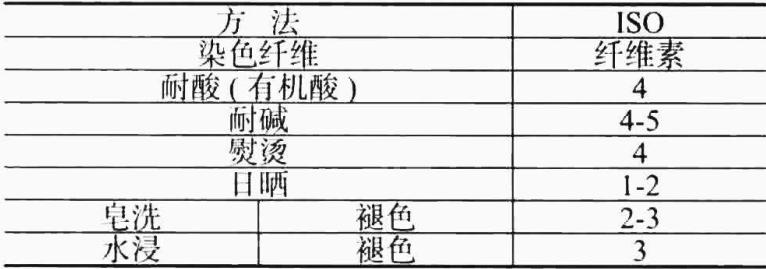 方 法 ISO
染色纤维 纤维素
耐酸(有机酸) 4
耐碱 4-5
熨烫 4
日晒 1-2
皂洗 褪色 2-3
水浸 褪色 3